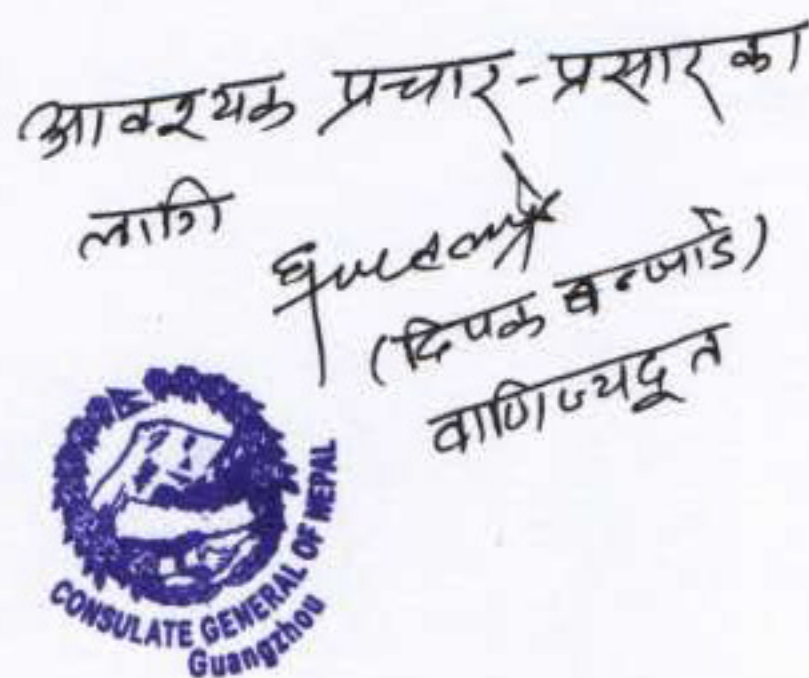 आवश्यक प्रचार-प्रसारका
लागि
(दिपक बन्जाडे)
वाणिज्यदूत
CONSULATE GENERAL OF NEPAL
Guangzhou